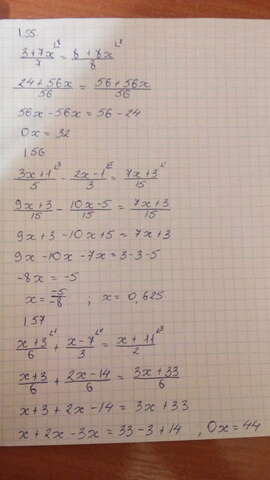 155
3+7x/7 ⌊8 = 8+8x/8 ⌊7
24+56x/56 = 56+56x/56
56x-56x = 56-24
0x = 32
156
3x+1/5 ⌊3 - 2x-1/3 ⌊5 = 7x+3/15 ⌊1
9x+3/15 - 10x-5/15 = 7x+3/15
9x+3-10x+5 = 7x+3
9x-10x-7x=3-3-5
-8x = -5
x = -5/-8 ; x = 0,625
157
x+3/6 ⌊1 + x-7/3 ⌊2 = x+11/2 ⌊3
x+3/6 + 2x-14/6 = 3x+33/6
x+3+2x-14 = 3x+33
x+2x-3x = 33-3+14 , 0x = 44